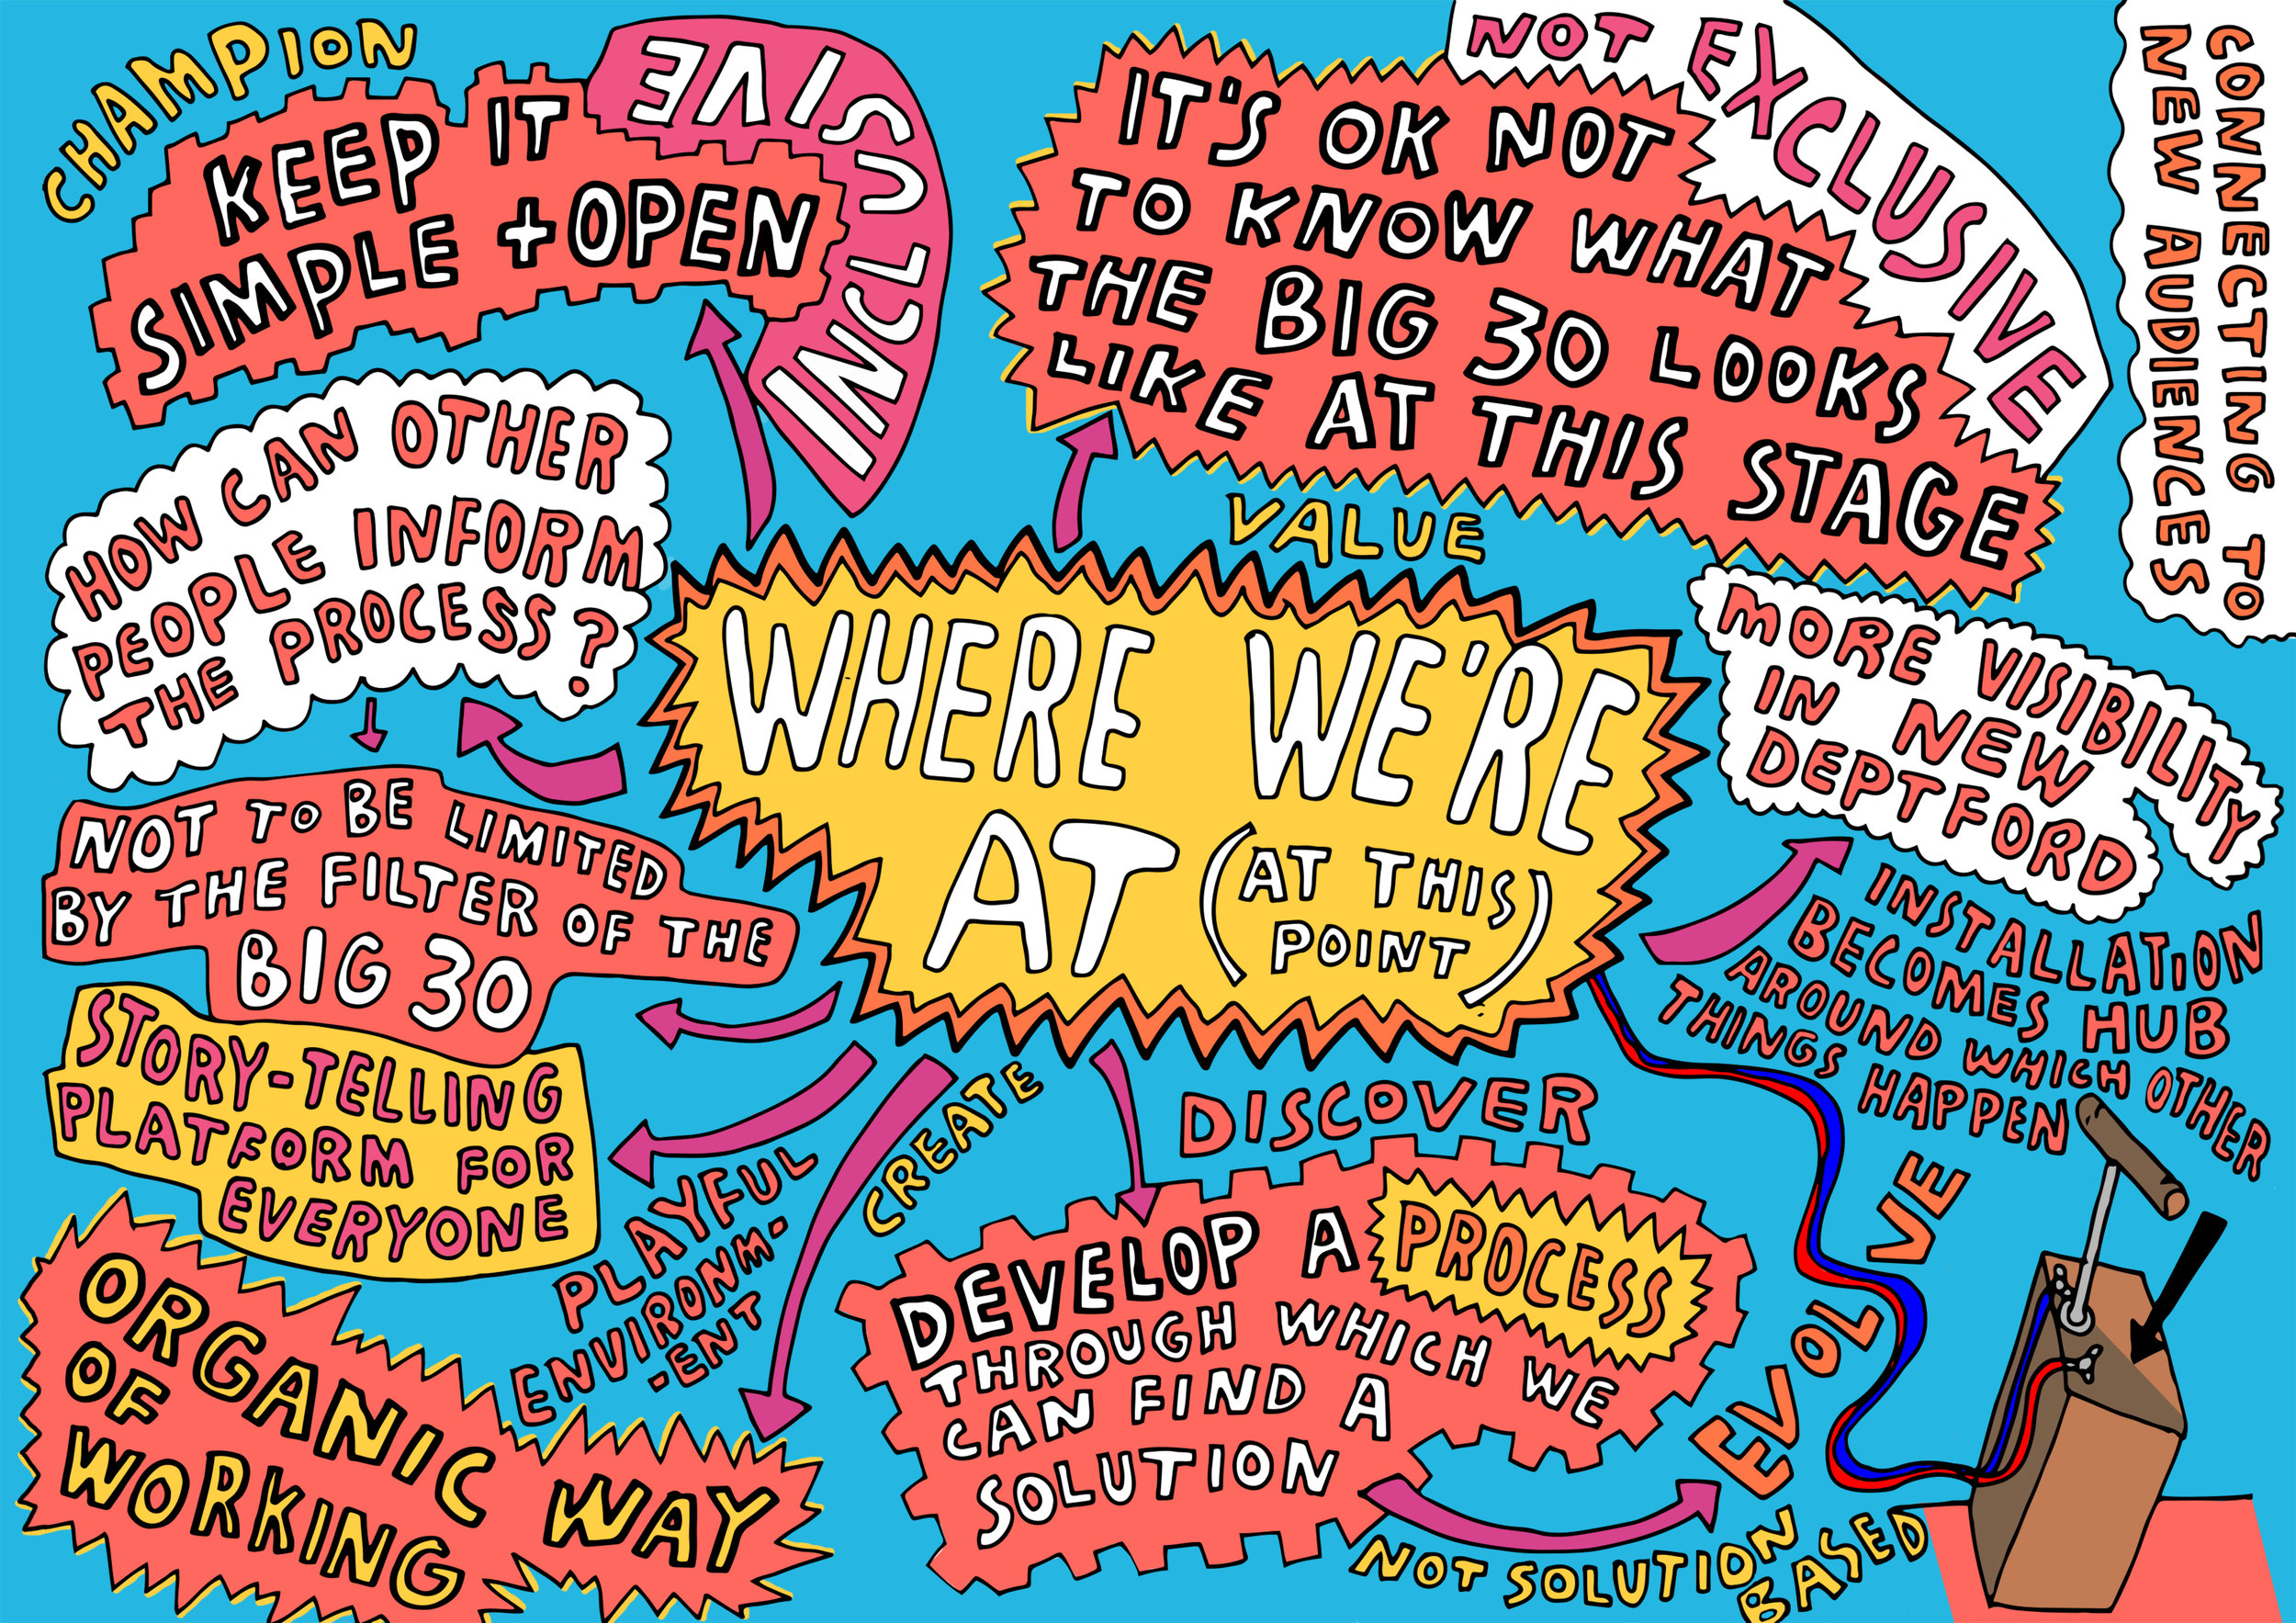 CHAMPION
KEEP IT
SIMPLE + OPEN
INCLUSIVE
IT'S OK NOT
TO KNOW WHAT
THE BIG 30 LOOKS
LIKE AT THIS STAGE
NOT EXCLUSIVE
CONNECTING TO
NEW AUDIENCES
VALUE
HOW CAN OTHER
PEOPLE INFORM
THE PROCESS?
WHERE WE'RE
AT (AT THIS
POINT)
MORE VISIBILITY
IN NEW
DEPTFORD
NOT TO BE LIMITED
BY THE FILTER OF THE
BIG 30
INSTALLATION
BECOMES HUB
AROUND WHICH OTHER
THINGS HAPPEN
STORY-TELLING
PLATFORM FOR
EVERYONE
PLAYFUL
ENVIRONM-
-ENT
CREATE
DISCOVER
DEVELOP A PROCESS
THROUGH WHICH WE
CAN FIND A
SOLUTION
EVOLVE
NOT SOLUTION
BASED
ORGANIC WAY
OF
WORKING